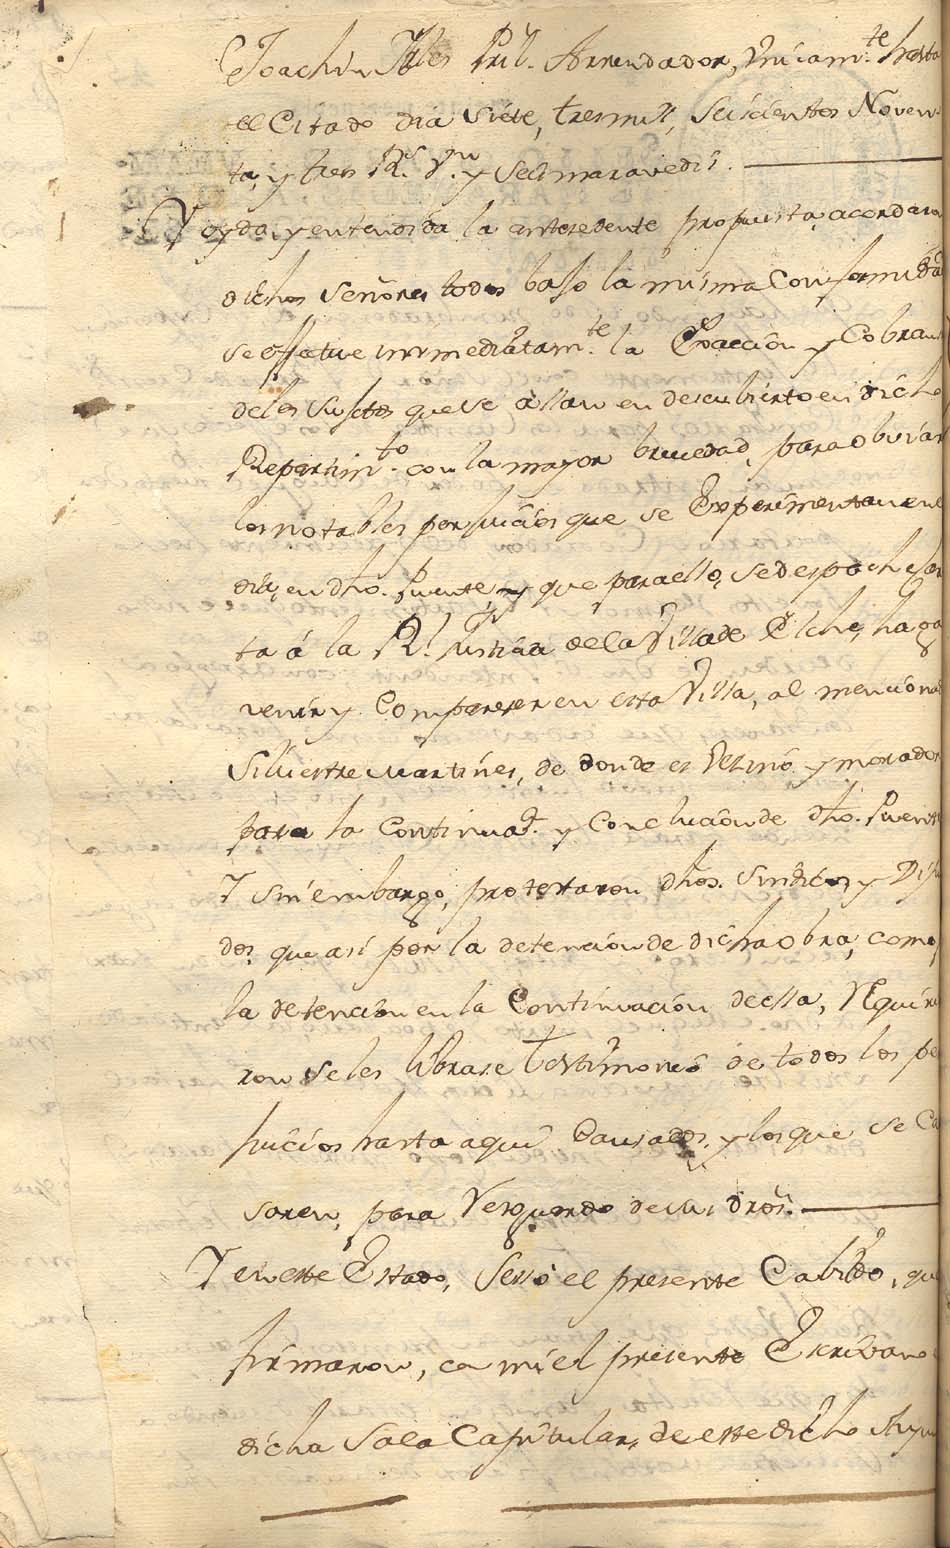 Joachin Pril. Arrendador, Unicam.te hasta
el Citado dia siete, tresmil, seiscientos Noven
ta, y tres R.s V.n y seis maravedis.
Y oyda, y entendida la antesedente propuesta, acordaron
dichos señores todos bajo la misma Conformidad
se effetue inmediatam.te la Exaccion y Cobran
de los sujetos que se allan en descubierto en dicho
Repartim.to con la mayor brevedad, para obviar
los notables perjuicios que se Experimentan en el
dia, en dho. Puente, y que para ello, se despache Car
ta á la R.l Justicia de la Villa de Elche, haga
venir y Compareser en esta Villa, al menciona
Silvestre Martines, de donde es Vezino y morador
para la Continuad.n y Concluciòn de dho. Puente
Y sin embargo, protestaron dhos. Sindicos y Dipu
dos, que asi por la detencion de dicha obra, como
la detencion en la Continuacion de ella, Requirie
ron se les librase testimonio de todos los per
juicios hasta aqui Causados, y los que se Ca
saren, para Resguardo de sus dros.
Y en este Estado, Sessó el presente Cabildo, que
firmaron, con mi el presente Escribano
dicha Sala Capitular, de este dicho Ayun